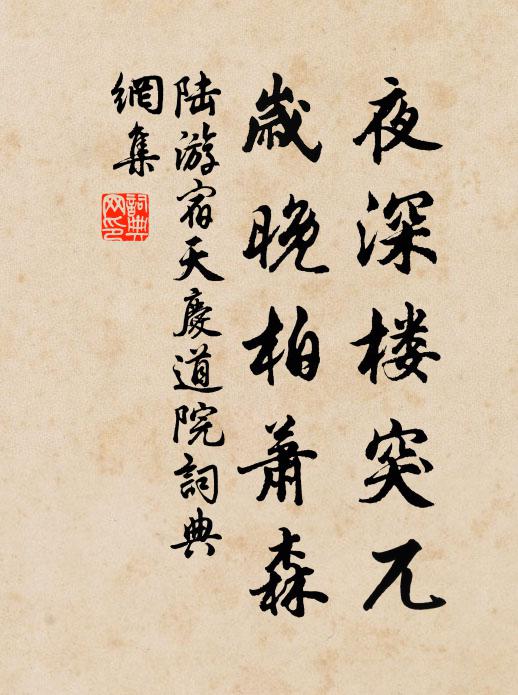 夜深楼突兀
歲晚柏蕭森
陆游宿天慶道院詞典
網集
詞典
网印